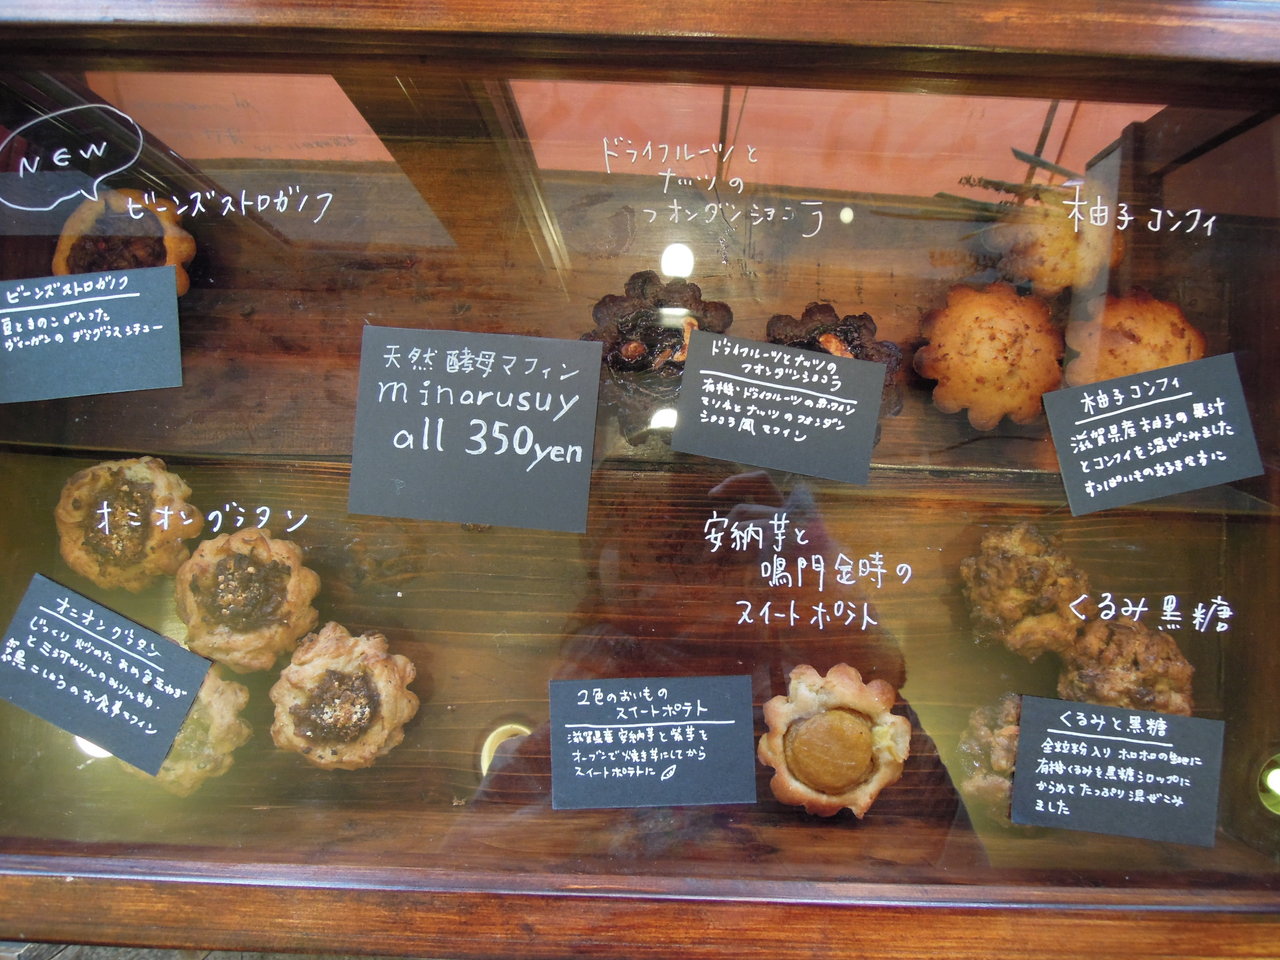 NEW
ビーンズストロガノフ
ビーンズストロガノフ
豆ときのこが入った
ヴィーガンの デミグラスシチュー
ドライフルーツと
ナッツの
フォンダンショコラ
ドライフルーツとナッツの
フォンダンショコラ
有機・ドライフルーツの赤ワイン
マリネとナッツのフォンダン
ショコラ風マフィン
柚子コンフィ
柚子コンフィ
滋賀県産 柚子の果汁
とコンフィを混ぜこみました
すっぱいもの好きな方に
天然酵母マフィン
minarusuy
all 350yen
オニオングラタン
オニオングラタン
じっくり炒めた あめ色玉ねぎ
と三河みりんのみりん粕、
黒こしょうのお食事マフィン
安納芋と
鳴門金時の
スイートポテト
2色のおいもの
スイートポテト
滋賀県産 安納芋と紫芋を
オーブンで焼き芋にしてから
スイートポテトに
くるみ黒糖
くるみと黒糖
全粒粉入り ホロホロの生地に
有機くるみを黒糖シロップに
からめて たっぷり混ぜこみ
ました